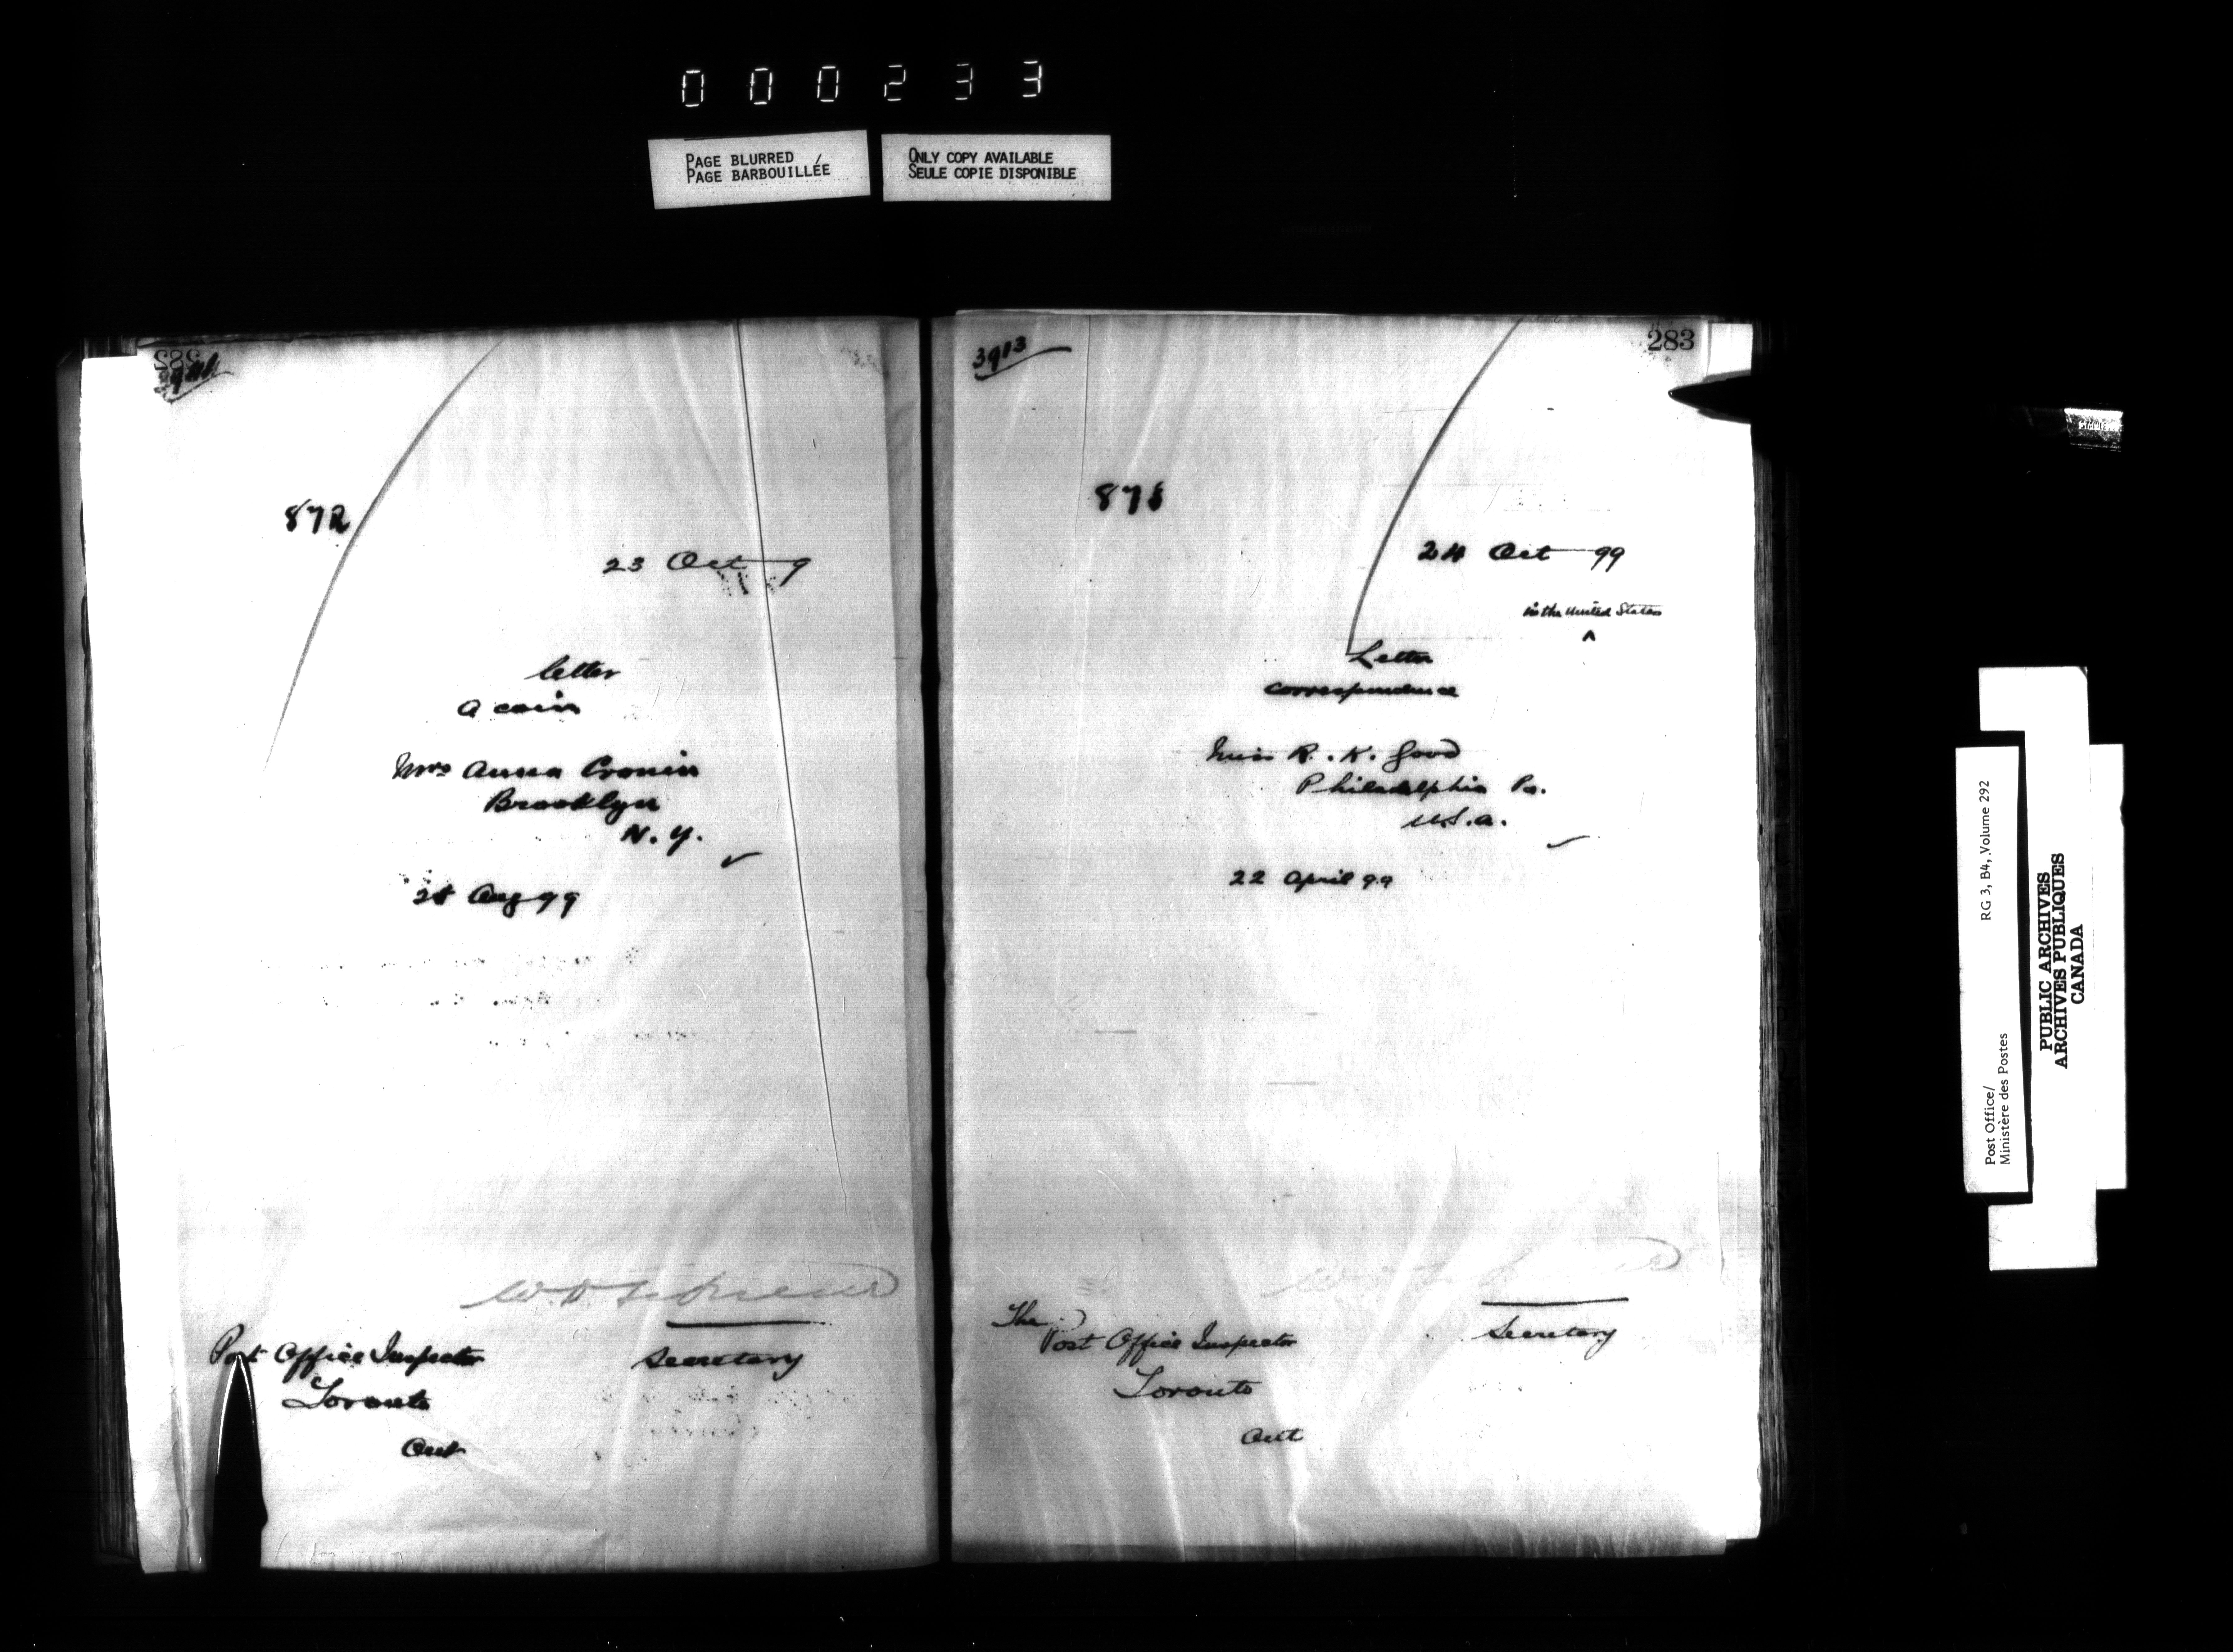 000233
PAGE BLURRED
PAGE BARBOUILLÉE
ONLY COPY AVAILABLE
SEULE COPIE DISPONIBLE
282
872
23 Oct 9
letter
a coin
Mrs Anna Cronin
Brooklyn
N. Y.
Aug 99
Secretary
Post Office Inspector
Toronto
Ont
283
3913
24 Oct 99
in the United States
^
Letter
correspondence
Miss R. K. Good
Philadelphia Pa.
U.S.a.
22 April 99
Secretary
The
Post Office Inspector
Toronto
Ont
Post Office/
Ministère des Postes
RG 3, B4, Volume 292
PUBLIC ARCHIVES
ARCHIVES PUBLIQUES
CANADA